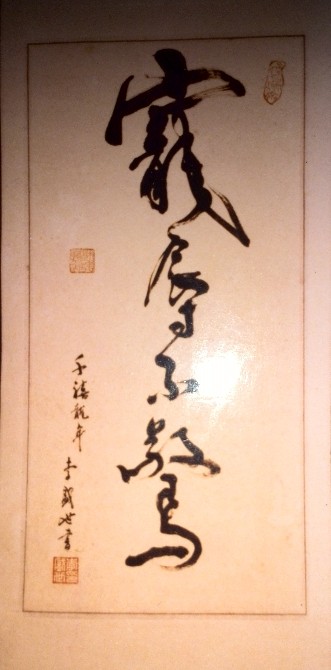 寵辱不驚
千禧龍年
李戡世書